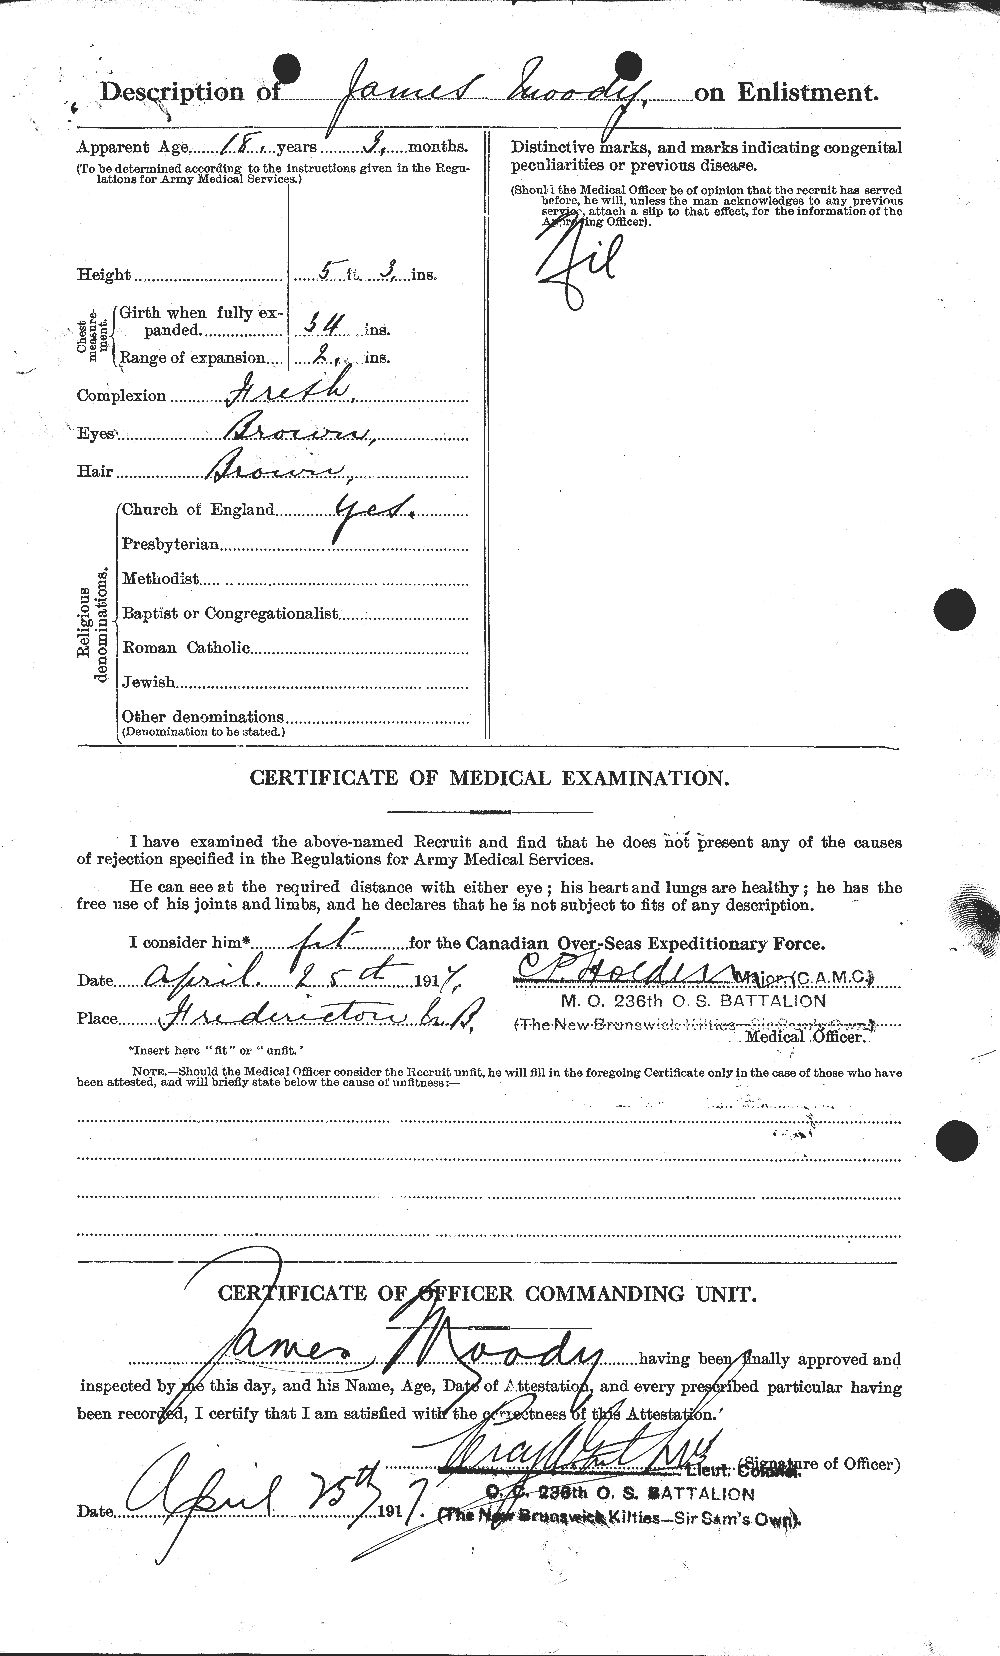 Description of James Moody, on Enlistment.
Apparent Age 18, years 3, months.
(To be determined according to the instructions given in the Regu-
lations for Army Medical Services.)
Height 5 ft. 3, ins.
Chest measure-
ment.
Girth when fully ex-
panded 34 ins.
Range of expansion 2, ins.
Complexion Fresh,
Eyes Brown,
Hair Brown,
Religious
denominations.
Church of England Yes.
Presbyterian
Methodist
Baptist or Congregationalist
Roman Catholic
Jewish
Other denominations
(Denomination to be stated.)
Distinctive marks, and marks indicating congenital
peculiarities or previous disease.
(Should the Medical Officer be of opinion that the recruit has served
before, he will, unless the man acknowledges to any previous
service, attach a slip to that effect, for the information of the
Approving Officer).
Nil
CERTIFICATE OF MEDICAL EXAMINATION.
I have examined the above-named Recruit and find that he does not present any of the causes
of rejection specified in the Regulations for Army Medical Services.
He can see at the required distance with either eye; his heart and lungs are healthy; he has the
free use of his joints and limbs, and he declares that he is not subject to fits of any description.
I consider him* fit for the Canadian Over-Seas Expeditionary Force.
Date April 25th 1917, C P Holden Major (C.A.M.C.)
M. O. 236th O. S. BATTALION
Place Fredericton N.B. (The New Brunswick Kilties—Sir Sam's Own)
Medical Officer.
*Insert here "fit" or "unfit."
NOTE.—Should the Medical Officer consider the Recruit unfit, he will fill in the foregoing Certificate only in the case of those who have
been attested, and will briefly state below the cause of unfitness:—
CERTIFICATE OF OFFICER COMMANDING UNIT.
James Moody having been finally approved and
inspected by me this day, and his Name, Age, Date of Attestation, and every prescribed particular having
been recorded, I certify that I am satisfied with the correctness of this Attestation.
(Signature of Officer)
Lieut. Colonel.
O. C. 236th O. S. BATTALION
Date April 25th 1917. (The New Brunswick Kilties—Sir Sam's Own).